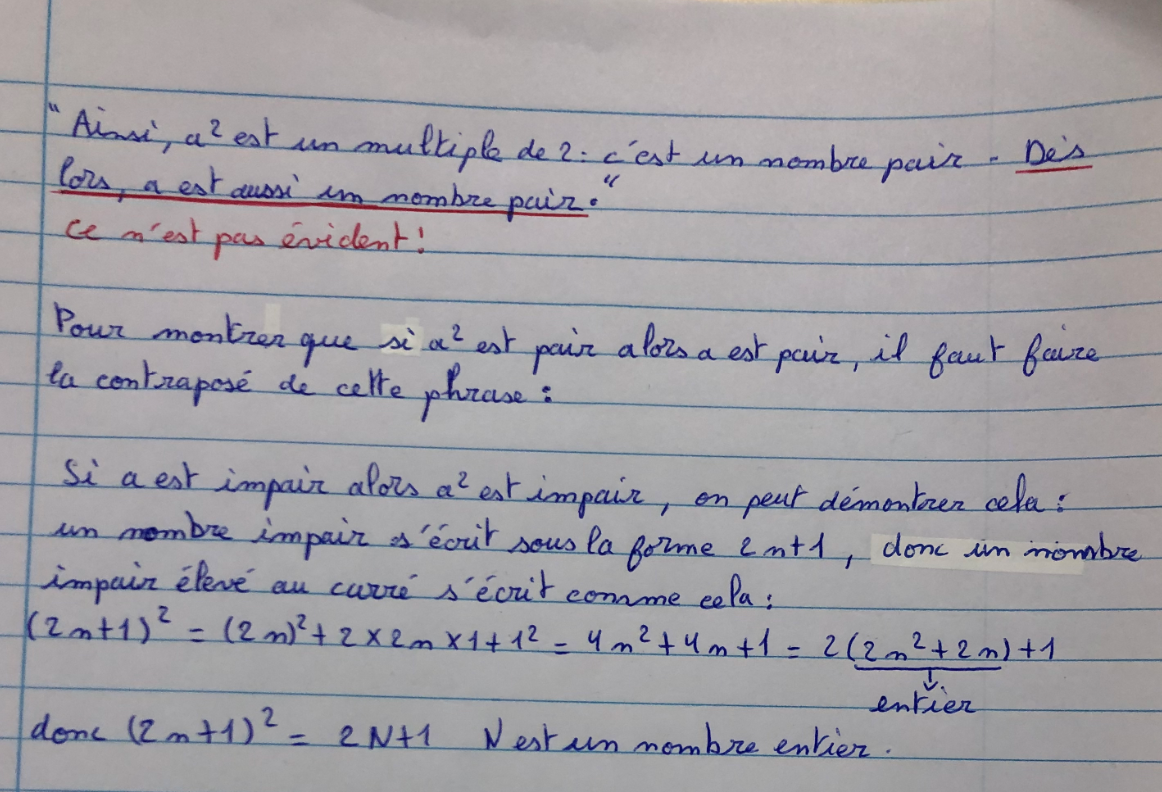 "Ainsi, a² est un multiple de 2 : c'est un nombre pair. Dès
lors, a est aussi un nombre pair."
Ce n'est pas évident !
Pour montrer que si a² est pair alors a est pair, il faut faire
la contraposé de cette phrase :
Si a est impair alors a² est impair, on peut démontrer cela :
un nombre impair s'écrit sous la forme 2n+1, donc un nombre
impair élevé au carré s'écrit comme cela :
(2n+1)² = (2n)² + 2 × 2n × 1 + 1² = 4n² + 4n + 1 = 2(2n² + 2n) + 1
entier
donc (2n+1)² = 2N+1 N est un nombre entier.